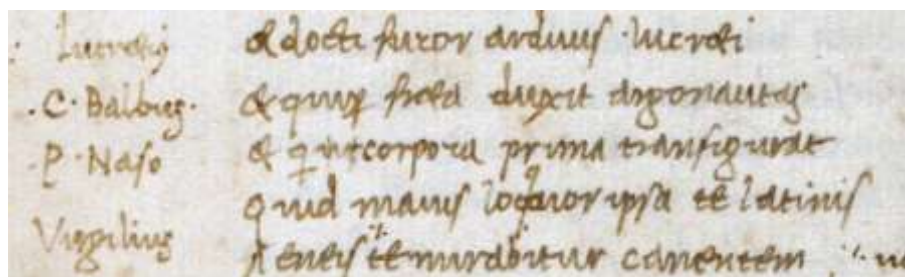 Lucretij & docti furor arduus lucreti
.C. Balbus. & qui per freta duxit argonautas
.P. Naso & qui corpora prima transfigurat
Virgilius quid maius loquor ipsa te latinis
Aeneis te mirabitur canentem